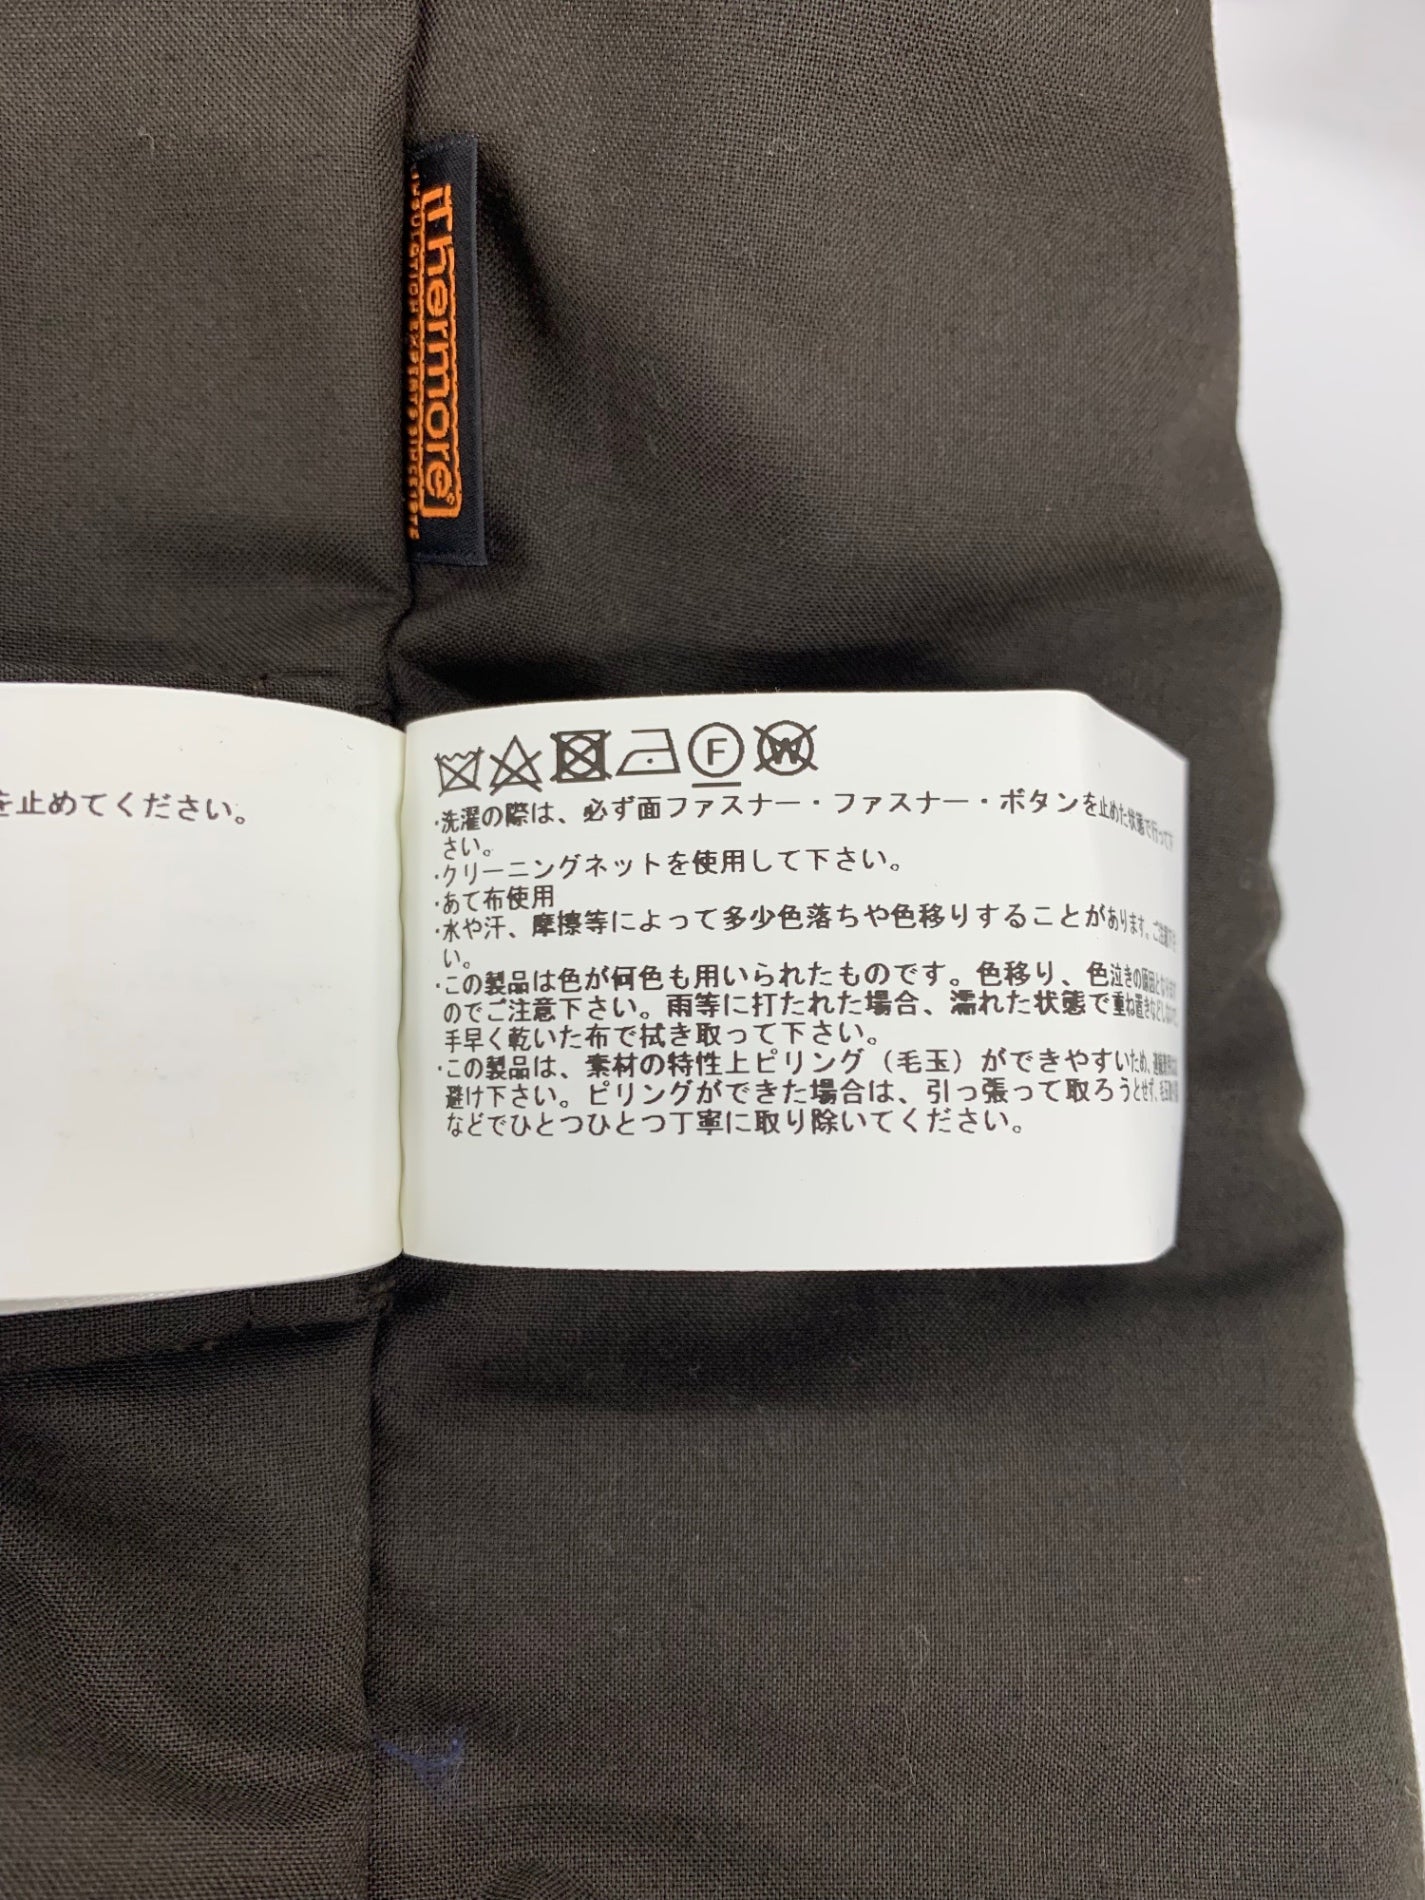 Thermore
を止めてください。
F
W
・洗濯の際は、必ず面ファスナー・ファスナー・ボタンを止めた状態で行って下
さい。
・クリーニングネットを使用して下さい。
・あて布使用
・水や汗、摩擦等によって多少色落ちや色移りすることがあります。ご注意下さ
い。
・この製品は色が何色も用いられたものです。色移り、色泣きの原因となります
のでご注意下さい。雨等に打たれた場合、濡れた状態で重ね置きなどしないで、
手早く乾いた布で拭き取って下さい。
・この製品は、素材の特性上ピリング（毛玉）ができやすいため、
避け下さい。ピリングができた場合は、引っ張って取ろうとせず、
などでひとつひとつ丁寧に取り除いてください。